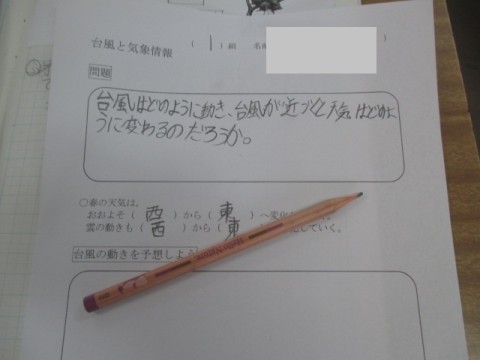 台風と気象情報 (1)組 名
問題
台風はどのように動き、台風が近づくと天気はどのよ
うに変わるのだろうか。
○春の天気は、
おおよそ(西)から(東)へ変
雲の動きも(西)から(東 していく。
台風の動きを予想しよう